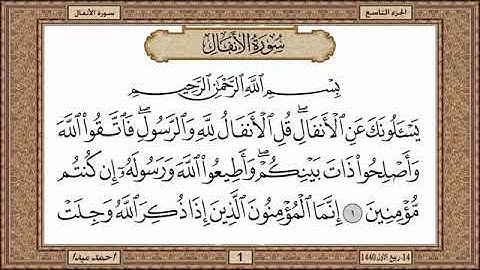 الجزء التاسع
سورة الأنفال
سُورَةُ الأَنفَالِ
بِسْمِ اللَّهِ الرَّحْمَٰنِ الرَّحِيمِ
يَسْـَٔلُونَكَ عَنِ ٱلْأَنفَالِ ۖ قُلِ ٱلْأَنفَالُ لِلَّهِ وَٱلرَّسُولِ ۖ فَٱتَّقُوا۟ ٱللَّهَ
وَأَصْلِحُوا۟ ذَاتَ بَيْنِكُمْ ۖ وَأَطِيعُوا۟ ٱللَّهَ وَرَسُولَهُۥٓ إِن كُنتُم
مُّؤْمِنِينَ ۝١ إِنَّمَا ٱلْمُؤْمِنُونَ ٱلَّذِينَ إِذَا ذُكِرَ ٱللَّهُ وَجِلَتْ
14- ربيع الأول 1440
1
أحمد ميدا